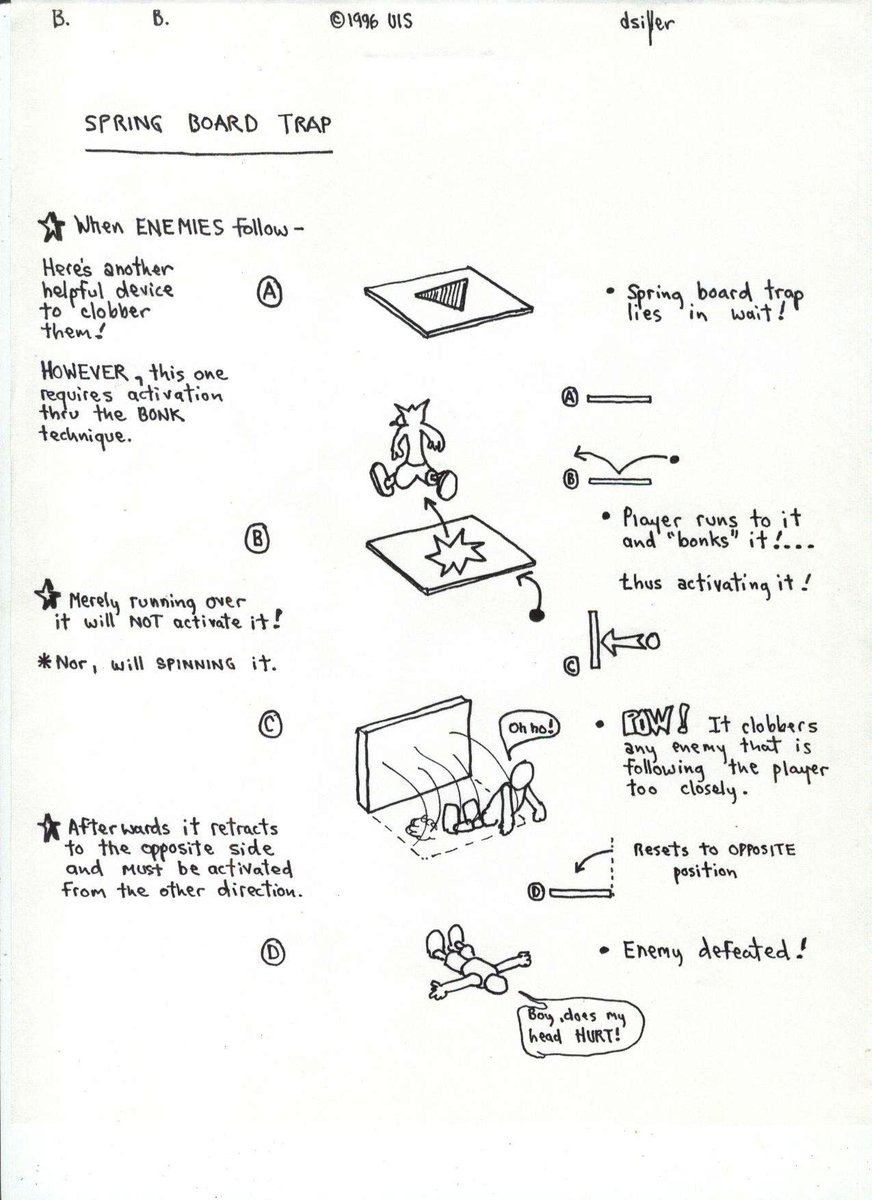 B. B. ©1996 UIS dsiller
SPRING BOARD TRAP
☆ When ENEMIES follow -
Here's another
helpful device
to clobber
them!
HOWEVER, this one
requires activation
thru the BONK
technique.
A
• Spring board trap
lies in wait!
A
B
B
• Player runs to it
and "bonks" it!....
thus activating it!
☆ Merely running over
it will NOT activate it!
* Nor, will SPINNING it.
C
C
Oh ho!
• POW! It clobbers
any enemy that is
following the player
too closely.
☆ Afterwards it retracts
to the opposite side
and MUST be activated
from the other direction.
Resets to OPPOSITE
position
D
D
• Enemy defeated!
Boy, does my
head HURT!